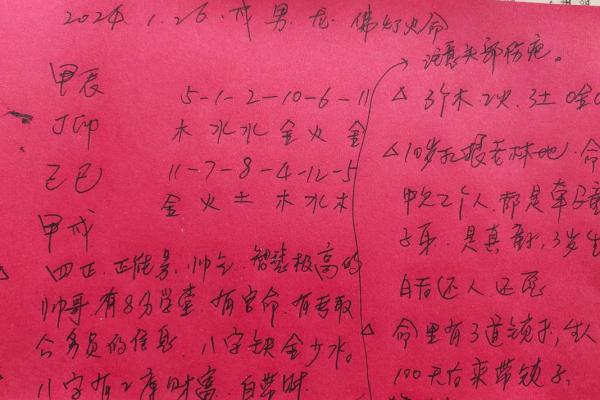 2024.1.26.戌 男.龙.佛灯火命
甲辰
丁卯
己巳
甲戌
5-1-2-10-6-11
木水水金火金
11-7-8-4-12-5
金火土木水木
四正.正能量.帅气.智慧极高的
帅哥.有8分学堂.有官命.有考取
公务员的信息.八字缺金少水。
八字有2库财富.自带财
注意头部伤疤。
△3个木2火.3土0金0
△10岁扎根老林地.命
中欠2个人.都是牵
子来.是真童子,3岁
白后还人还
△命里有3道锁子.生人
100天后来带锁子.